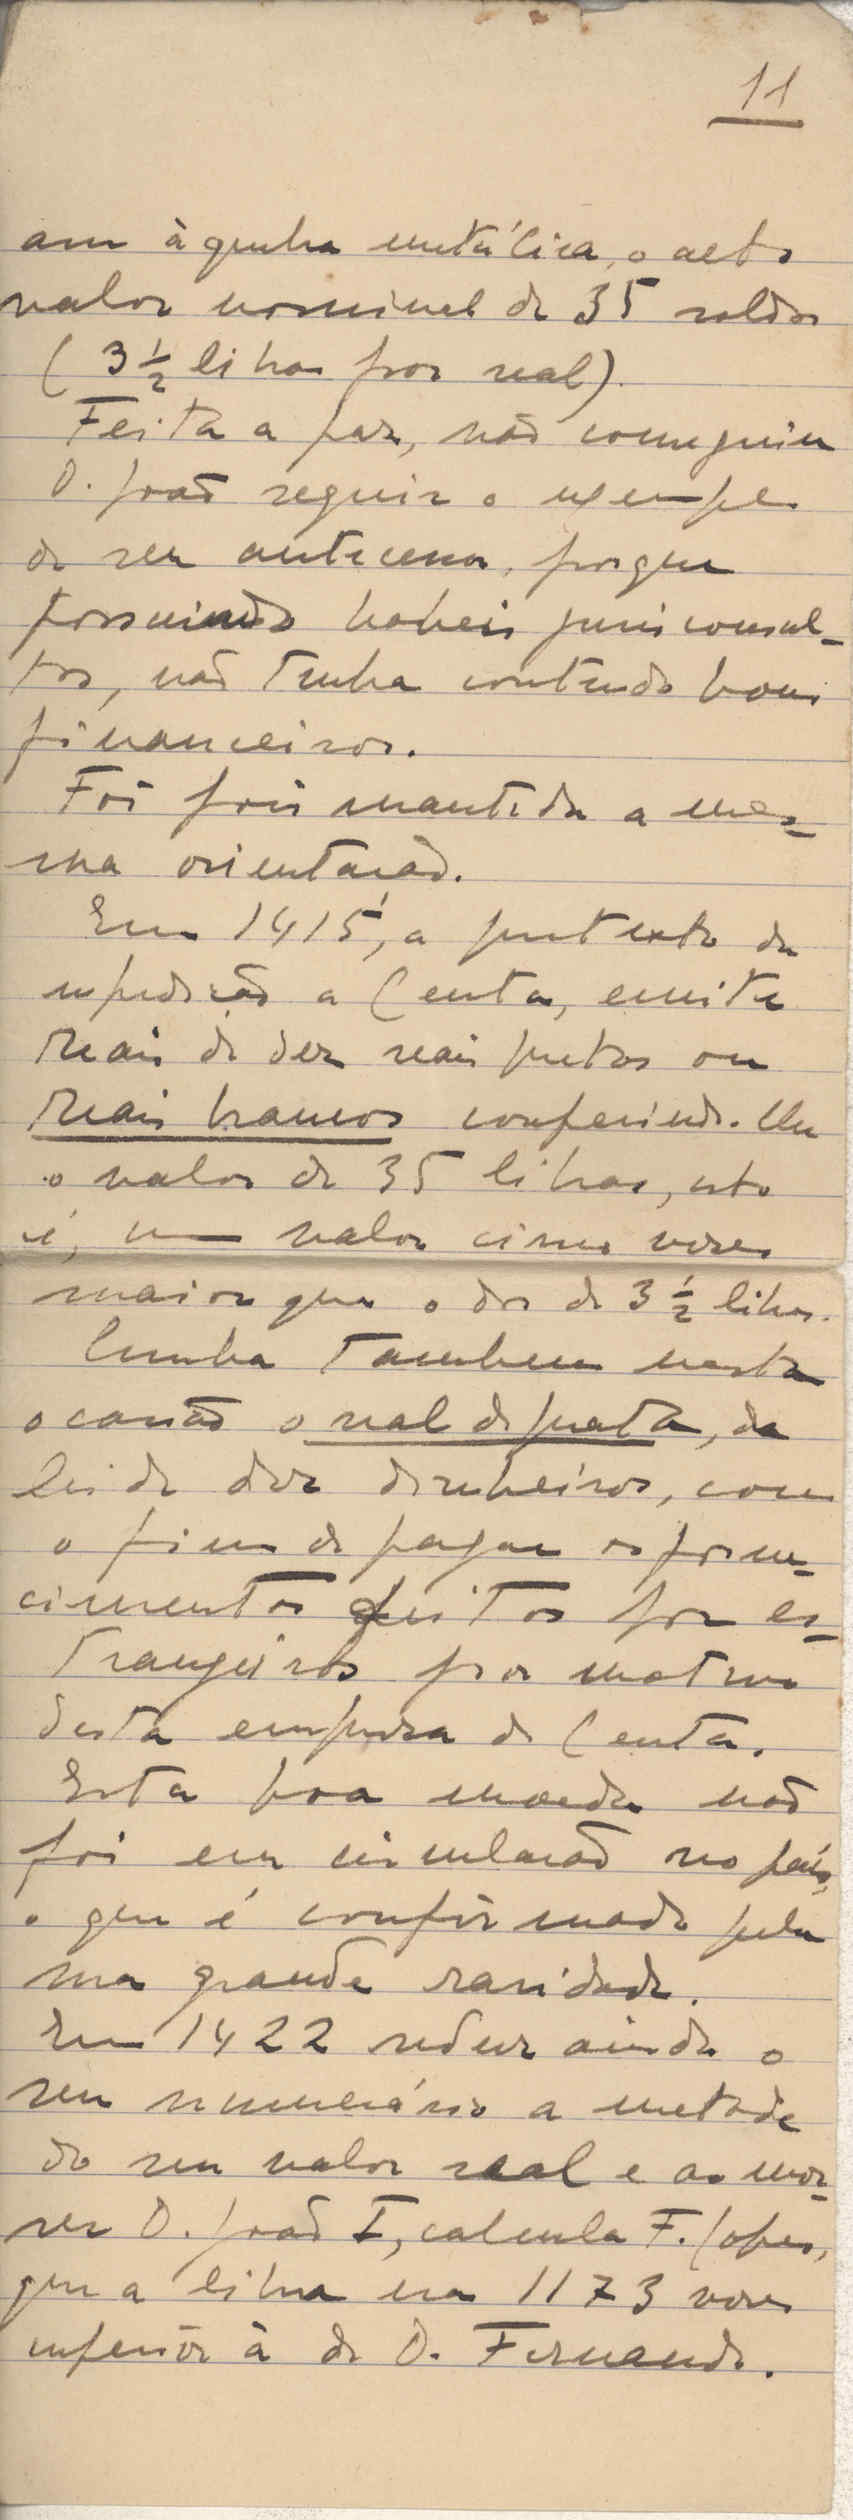 11
am à quebra metálica, o alto
valor nominal de 35 soldos
(3 1/2 libras por real).
Feita a paz, não conseguiu
D. João seguir o exemplo
de seu antecessor, porque
possuindo habeis jurisconsul-
tos, não tinha contudo bons
financeiros.
Foi pois mantida a mes-
ma orientação.
Em 1415, a pretexto da
expedição a Ceuta, emite
reais de dez reais pretos ou
reais brancos conferindo-lhe
o valor de 35 libras, isto
é, um valor cinco vezes
maior que o dos de 3 1/2 libras.
Cunha tambem nesta
ocasião o real de prata, da
lei de dez dinheiros, com
o fim de pagar os forne-
cimentos feitos por es-
trangeiros por motivo
desta empresa de Ceuta.
Esta boa moeda não
foi em circulação no país,
o que é confirmado pela
sua grande raridade.
Em 1422 reduz ainda o
seu numerário a metade
do seu valor real e ao mor-
rer D. João I, calcula F. Lopes,
que a libra era 1173 vezes
inferior à de D. Fernando.